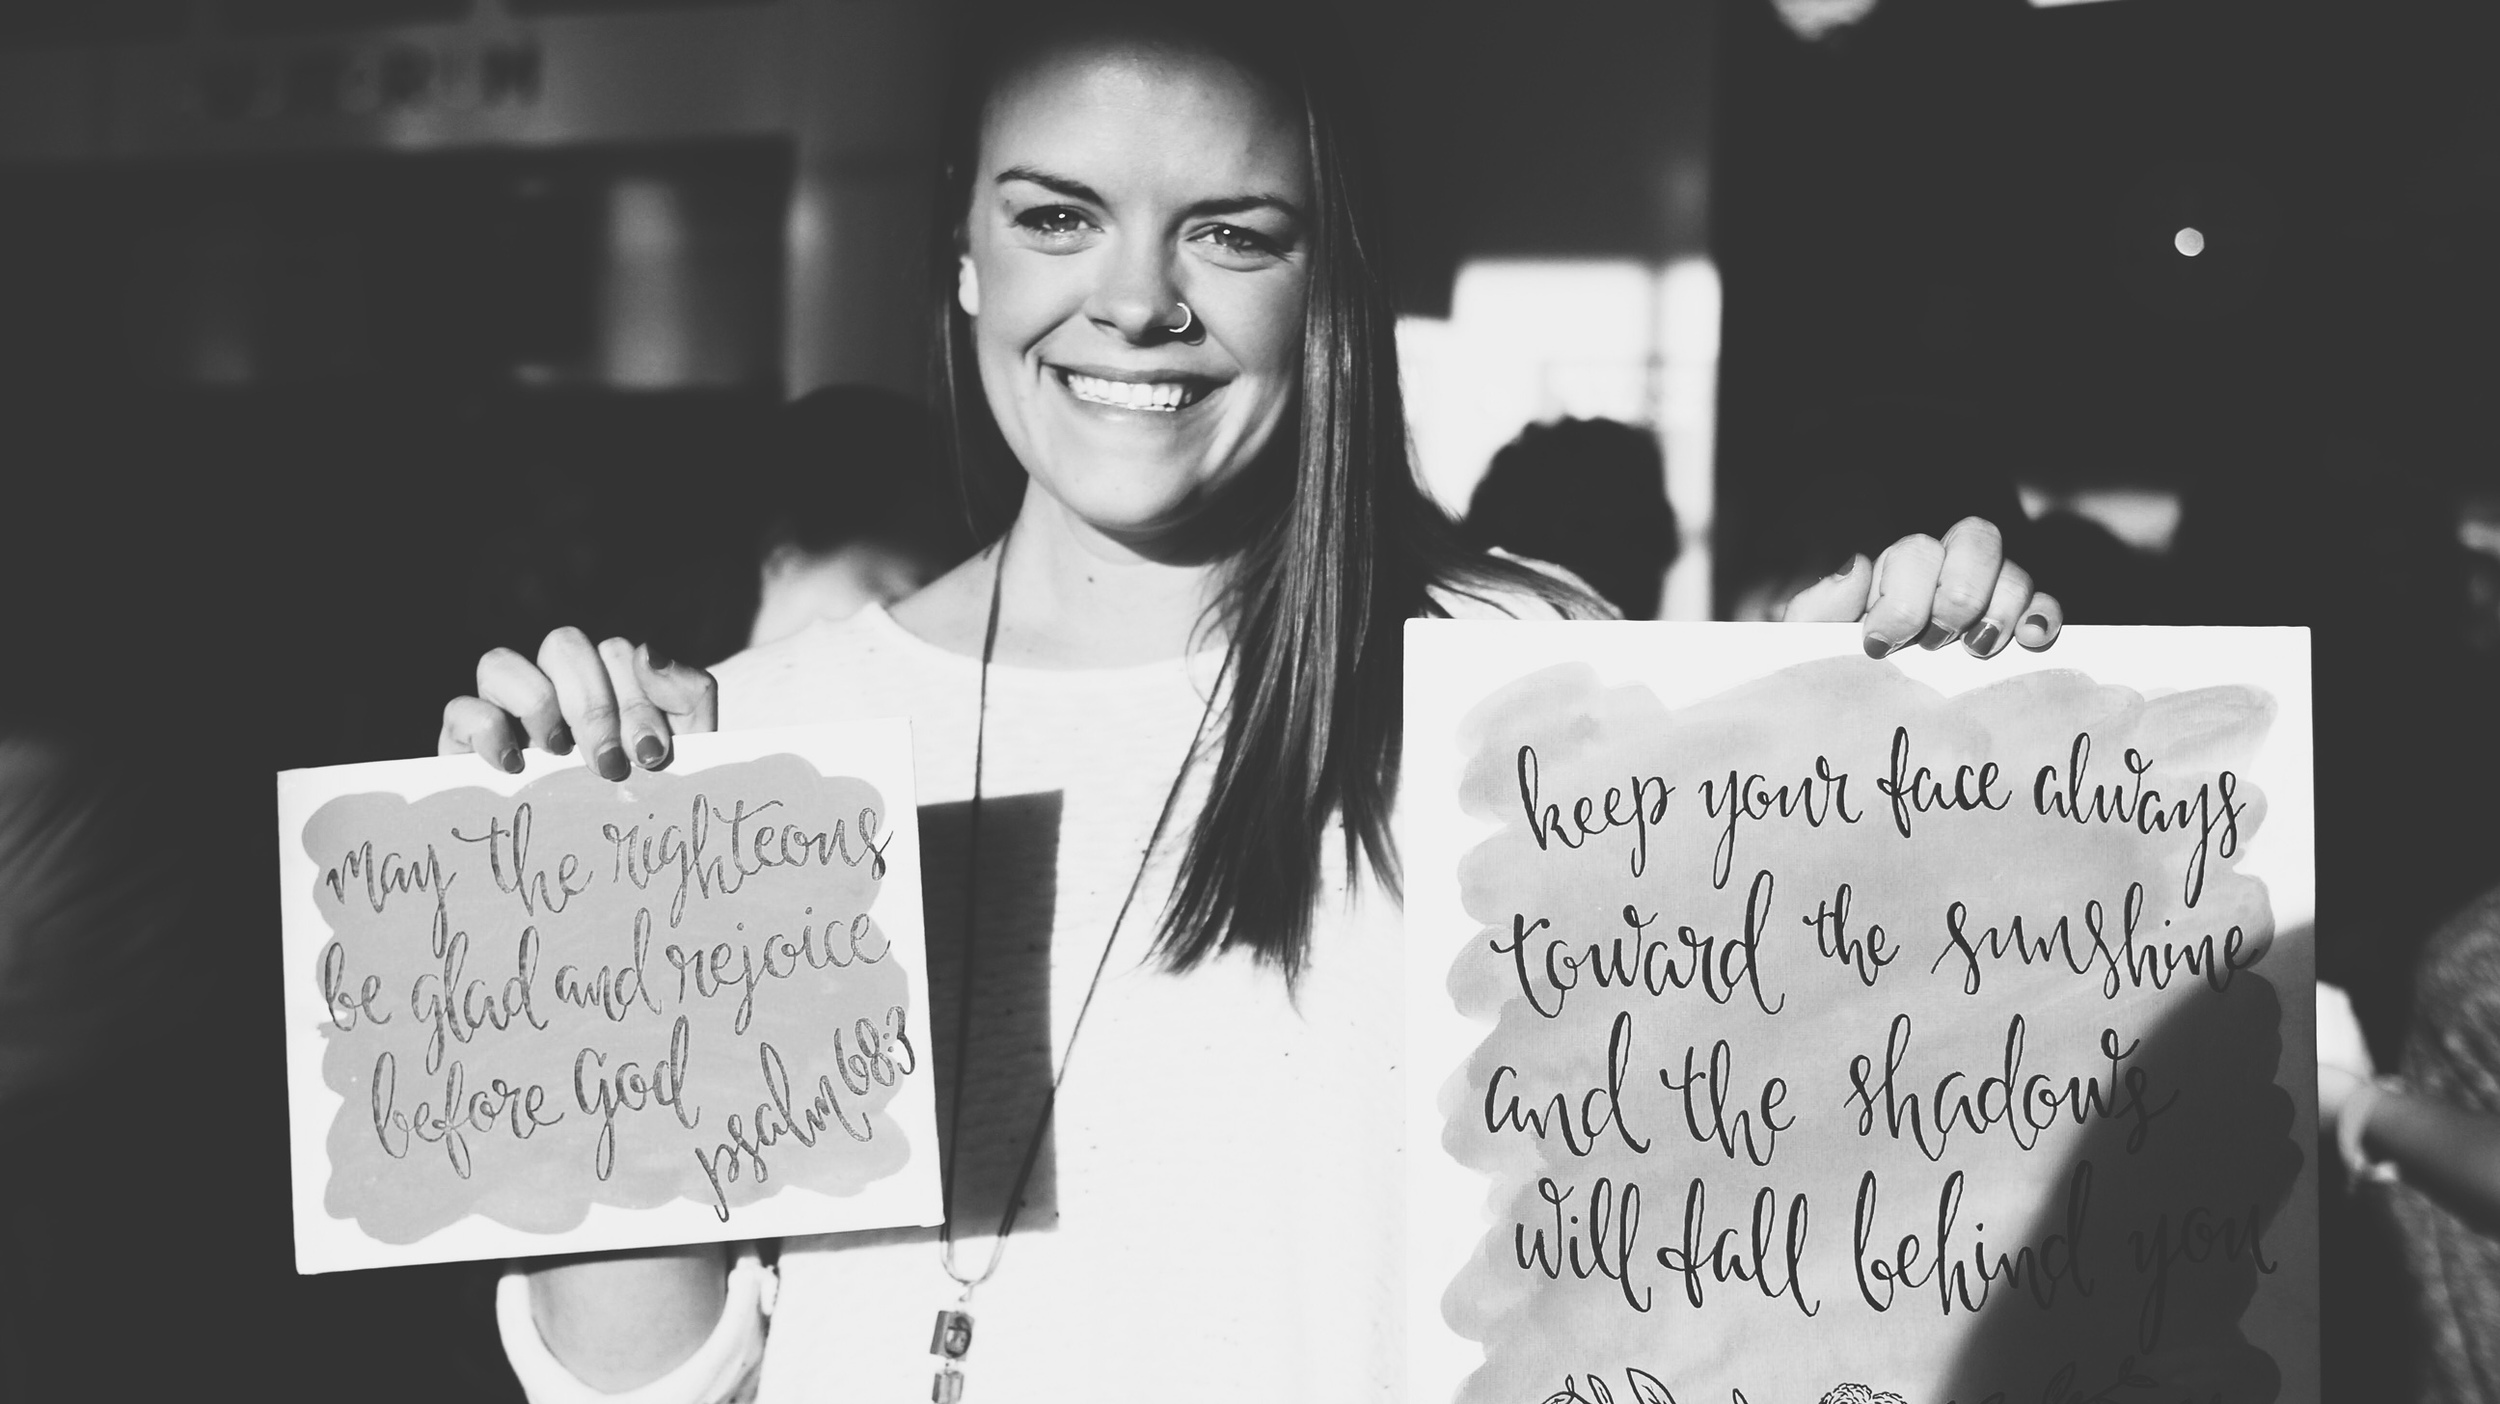 may the righteous
be glad and rejoice
before God
psalm 68:3
keep your face always
toward the sunshine
and the shadows
will fall behind you